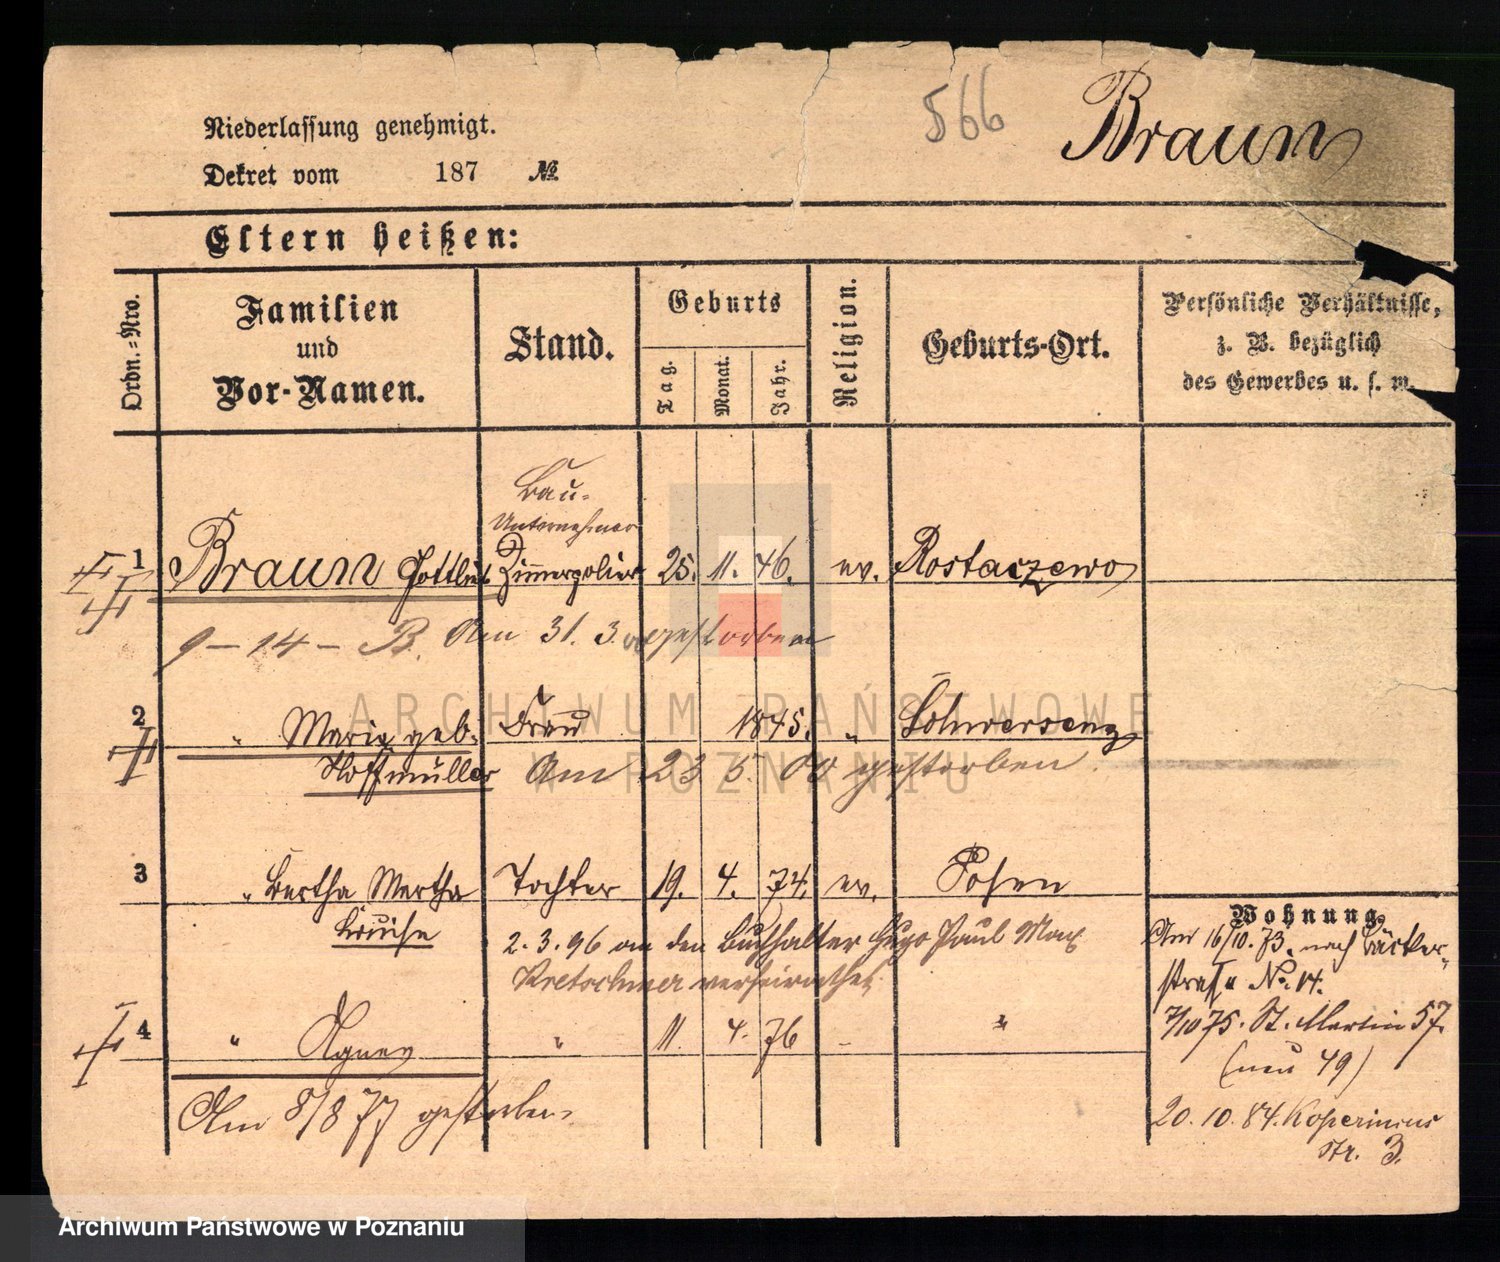 566 Braun
Niederlassung genehmigt.
Dekret vom 187 №
Eltern heißen:
Ordn.=Nro.
Familien
und
Vor-Namen.
Stand.
Geburts
Tag.
Monat.
Jahr.
Religion.
Geburts-Ort.
Persönliche Verhältnisse,
z. B. bezüglich
des Gewerbes u. s. w.
Bau-
Unternehmer
1 Braun Gottlieb Zimmerpolier 25. 11. 46. ev. Rostarzewo
9 - 14 - B. Am 31. 3. gestorben
2 " Maria geb. Frau 1845. " Schwersenz
Hoffmüller Am 23 5. 00 gestorben.
3 " Bertha Martha Tochter 19. 4. 74. ev. Posen
Louise 2. 3. 96 an den Buchhalter Hugo Paul Max
Kretschmer verheirathet
4 " Agnes " 11. 4. 76 - "
Am 8/8 77 gestorben.
Wohnung.
Am 16/10. 73. nach Bäcker-
straße No. 14.
7/10 75. St. Martin 57.
(neu 49)
20. 10. 84. Kopernicus
str. 3.
ARCHIWUM PAŃSTWOWE
W POZNANIU
Archiwum Państwowe w Poznaniu